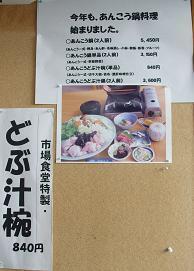 今年も、あんこう鍋料理
始まりました。
○あんこう鍋(2人前) 5,450円
○あんこう鍋単品(2人前) 3,150円
○あんこうどぶ汁椀(単品) 840円
○あんこうどぶ汁鍋(2人前) 3,600円
市場食堂特製・
どぶ汁椀
840円